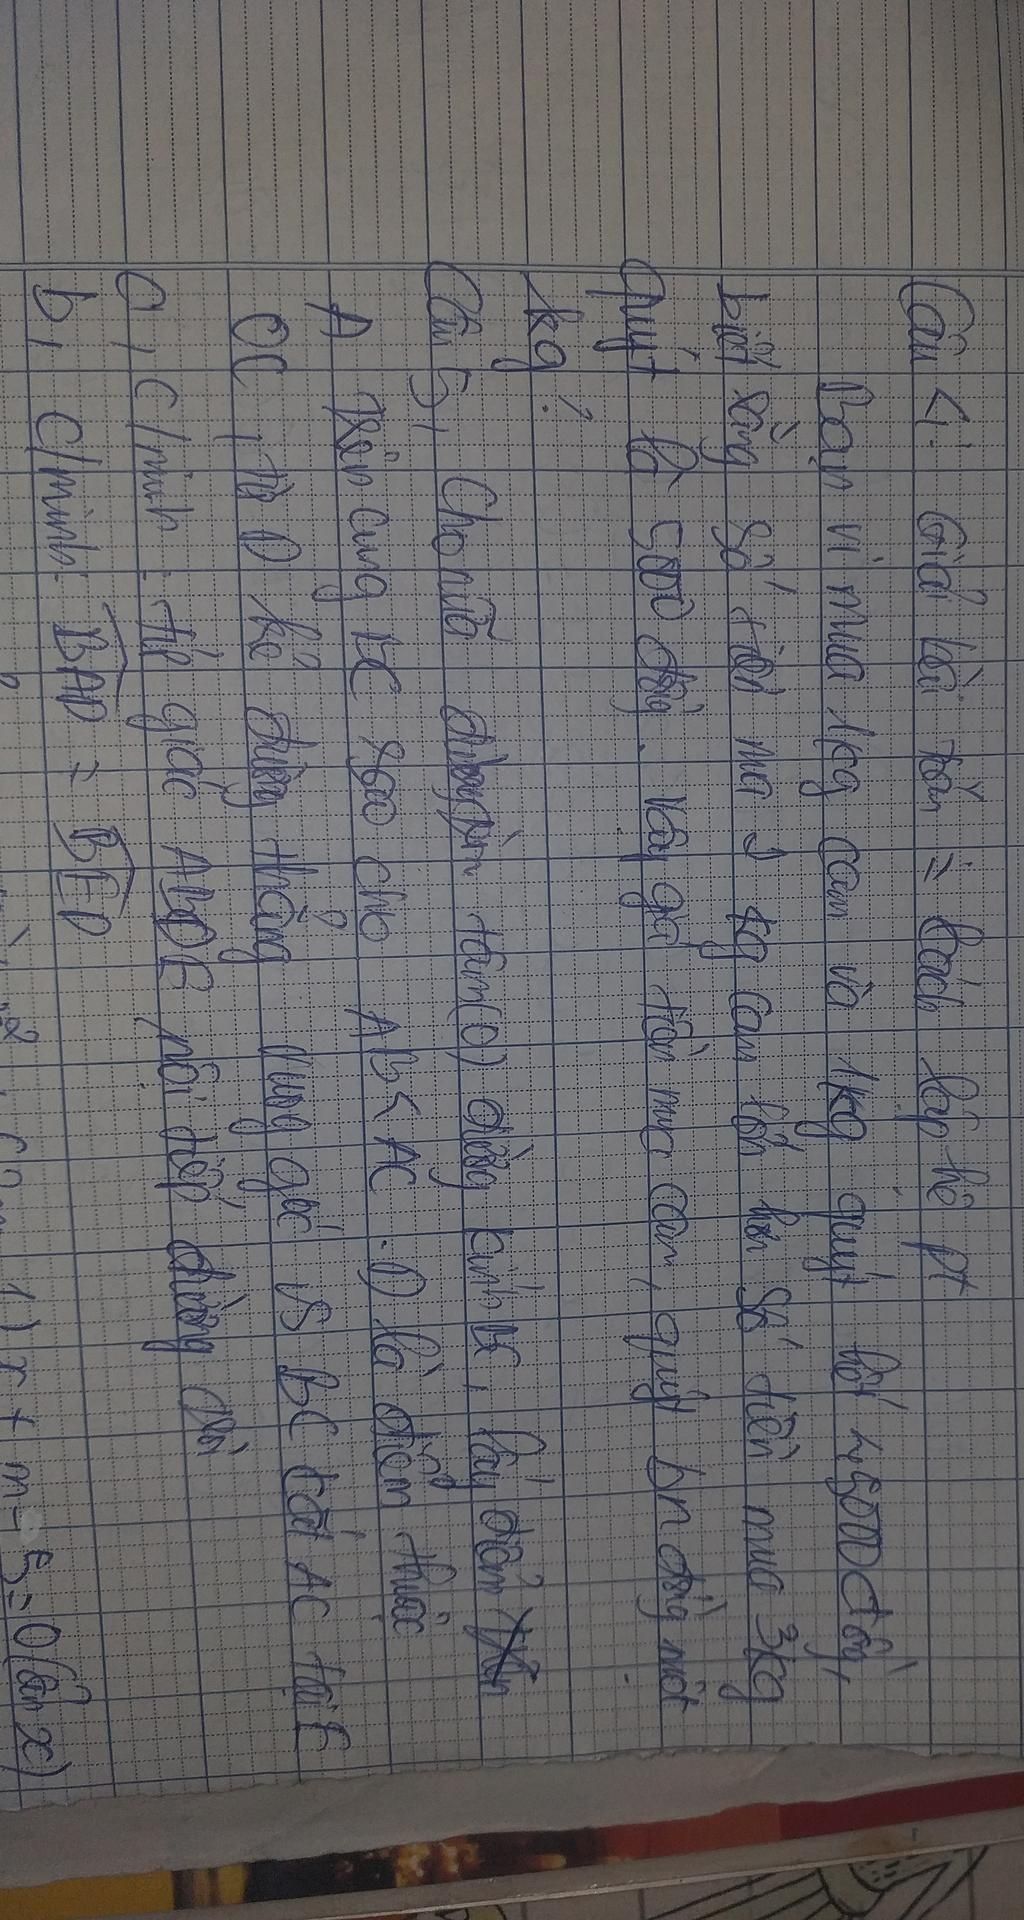 Câu 4: Giải bài toán = cách lập hệ pt
Bạn Vi mua 1kg cam và 1kg quýt hết 45000 đồng,
biết rằng số tiền mua 2 kg cam lớn hơn số tiền mua 3kg
quýt là 5000 đồng. Vậy giá tiền mua cam, quýt bn đồng một
kg?
Câu 5, Cho nửa đường tròn tâm (O) đường kính BC, lấy điểm
A trên cung BC sao cho AB < AC. D là điểm thuộc
OC, từ D kẻ đường thẳng vuông góc vs BC cắt AC tại E
a, C/minh: tứ giác ABDE nội tiếp đường tròn
b, C/minh: BAD = BED
1) x + m - 5 = 0 (ẩn x)